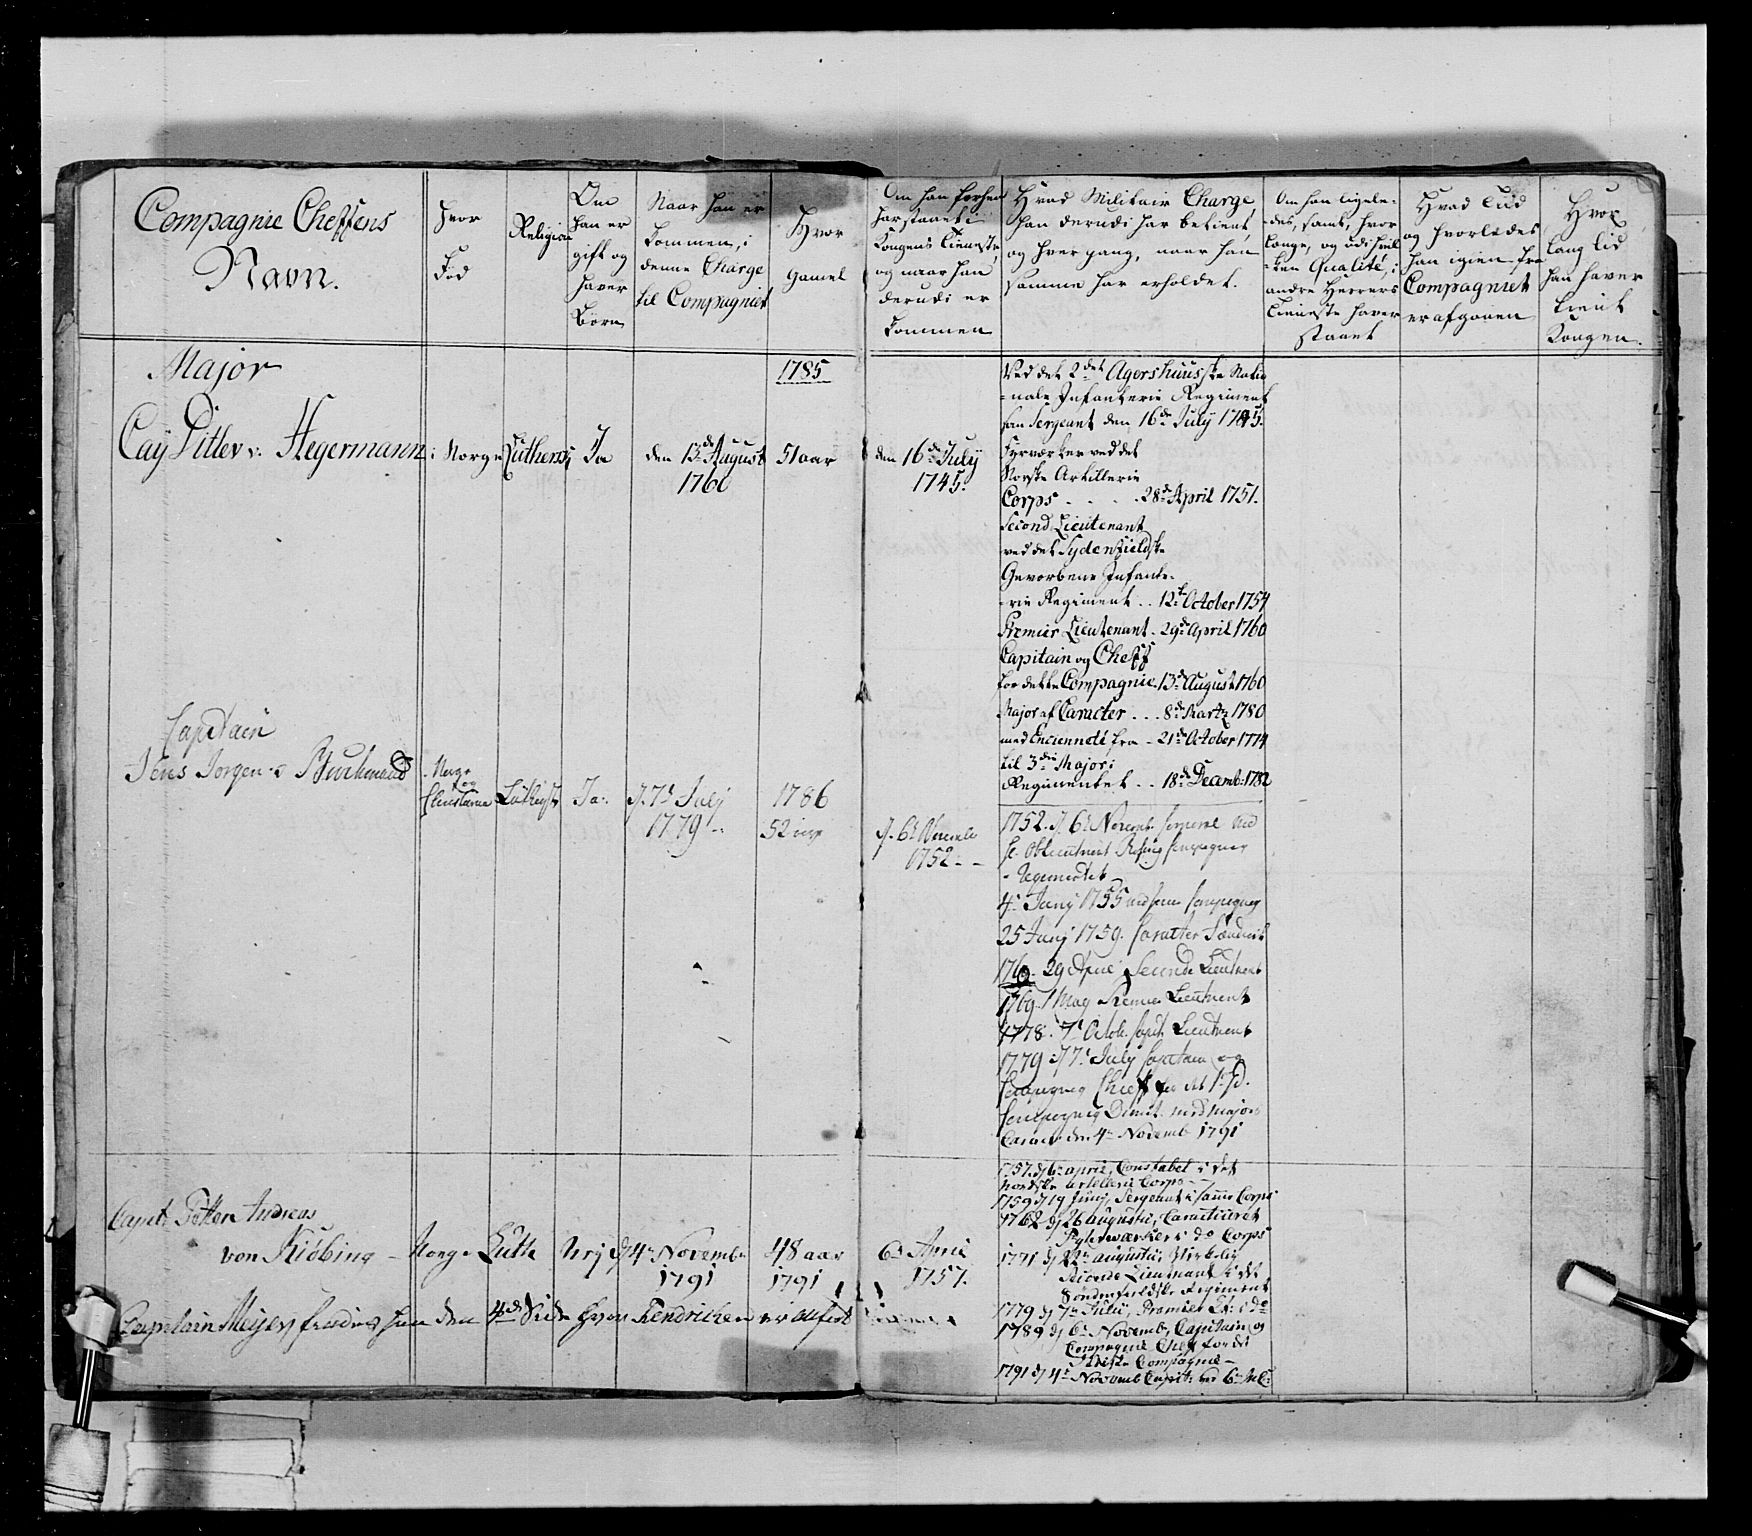 Compagnie Cheffens
Navn.
Hvor
Fød
Religion
Om
han er
gift og
haver
Børn
Naar han er
kommen, i
denne Charge
til Compagniet
Hvor
gamel
Om han forhen
har staaet i
Kongens Tieneste,
og naar han
derudi er
kommen
Hvad Militair Charge
han derudi har betient,
og hver gang, naar han
samme har erholdet.
Om han ligele-
des, samt, hvor
længe, og udi hvil-
ken Qualité, i
andre Herrers
Tieneste haver
staaet
Hvad Tiid
og hvorledes
han igien fra
Compagniet
er afgaaen
Hvor
lang tid
han haver
tient
Kongen.
Major
Cay Ditlev v: Hegermann
i Norge
Luthersk
Ja
den 13de August
1760
1785
51 aar
den 16de July
1745.
Ved det 2det Agershuusske Natio-
nale Infanterie Regiment
som Sergeant den 16de July 1745.
Fyrværker ved det
Norske Artillerie
Corps - - - 28de April 1751.
Second Lieutenant
ved det Sydenfieldske
Gevorbene Infante-
rie Regiment . . 12te October 1754
Premier Lieutenant . 29de April 1760
Capitain og Cheff
for dette Compagnie . 13de August 1760
Major af Caracter . . . 8de Martz 1780
med Enciennete fra - 21de October 1774
til 3die Major i
Regimentet . . 18de Decemb: 1782
Capitain
Jens Jørgen
Norge
og
Luthersk
Ja.
d. 7de July
1779
1786
52
d. 6te Novemb
1752 - -
1752. d. 6te Novemb. Ved
Regimentet
4de Junij 1755 ved samme Compagnie
25 Junij 1759. Caracter
1760. 29 April Seconde Lieutnant
1769. 1 May Premier Lieutnant
1778. 7de Octob. Capit Lieutnant
1779 d 7de July Capitain og
Compagnie Cheff for det
Compagnie Dimit. med Majors
Caract: den 4de Novemb 1791
Capit: Petter Andreas
von Kiøbing -
Norge
Luth
Nej
d 4de Novemb:
1791
48 aar
1791
6te April
1757.
1757. d 6te april, Constabel i det
Nordske Artellerie Corps - -
1759 d 19 Junij, Sergeant i samme Corps
1762 d 26 augustii, Caracticeret
Fyhrwærker i do Corps
1771 d 22de augustii, Virkelig
Seconde Lieutnant i det
Søndenfieldske Regiment
1779 d 7de Julii, Premier Lt: i do
1789 d 6te Novemb, Capitain og
Compagnie Chef for det
Compagnie -
1791 d 4de Novemb Capit: ved 6te M:C:
Capitain Meyer findes paa den 4de Side hvor Hendrichsen er Anført